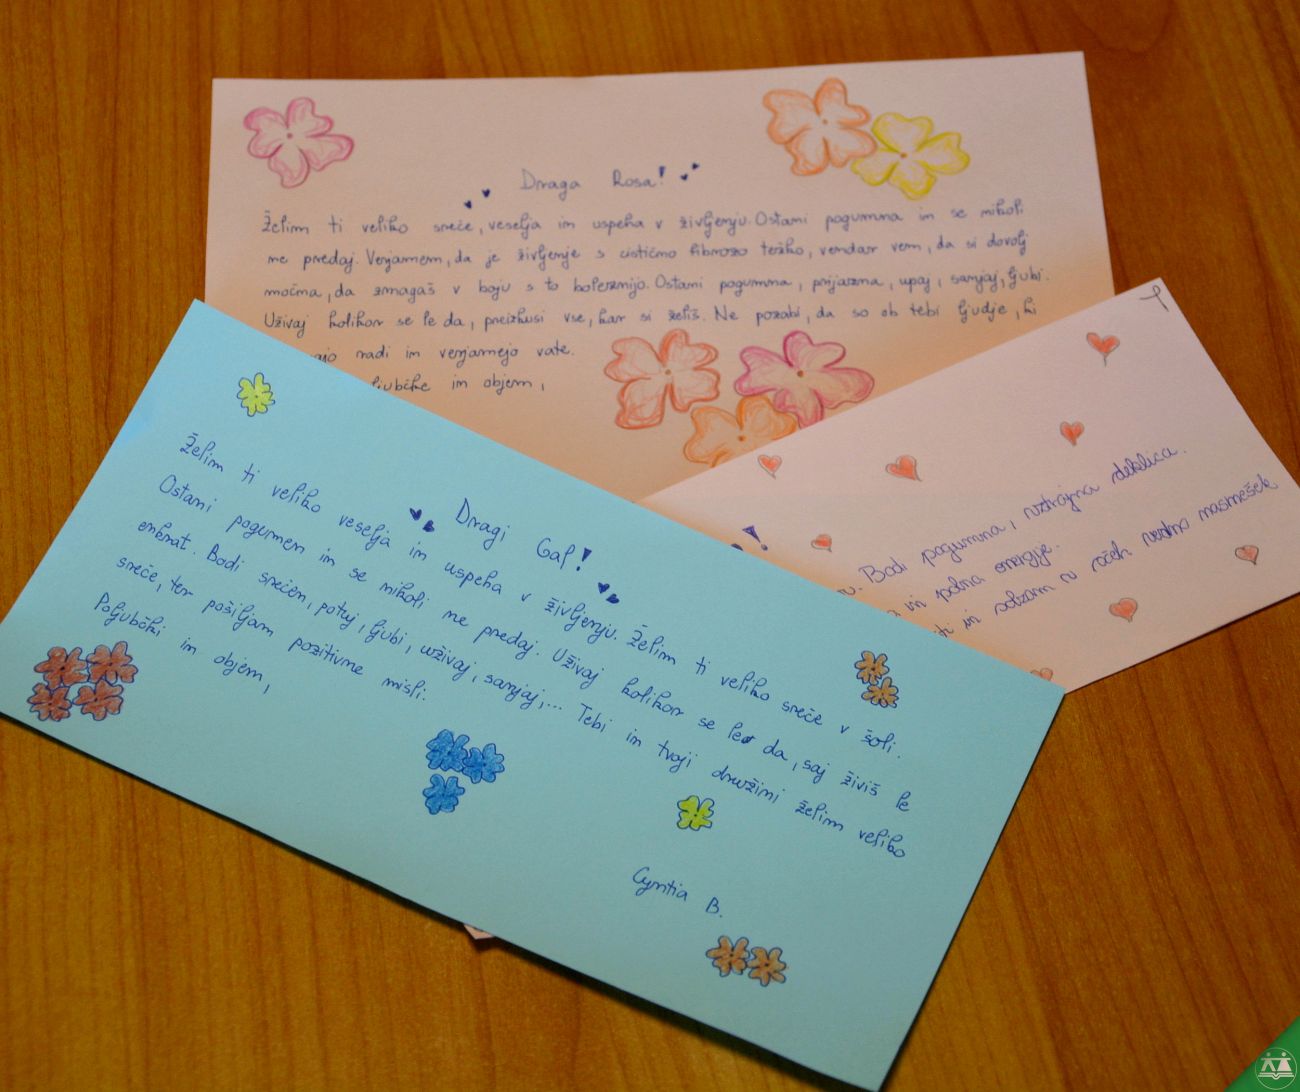 Draga Rosa!
Želim ti veliko sreče, veselja in uspeha v življenju. Ostani pogumna in se nikoli
ne predaj. Verjamem, da je življenje s cistično fibrozo težko, vendar vem, da si dovolj
močna, da zmagaš v boju s to boleznijo. Ostani pogumna, prijazna, upaj, sanjaj, ljubi.
Uživaj kolikor se le da, preizkusi vse, kar si želiš. Ne pozabi, da so ob tebi ljudje, ki
radi in verjamejo vate.
in objem,
Bodi pogumna, vztrajna deklica.
in polna energije.
in solzam v očeh vedno nasmešek
Dragi Gal!
Želim ti veliko veselja in uspeha v življenju. Želim ti veliko sreče v šoli.
Ostani pogumen in se nikoli ne predaj. Uživaj kolikor se le da, saj živiš le
enkrat. Bodi srečen, potuj, ljubi, uživaj, sanjaj,... Tebi in tvoji družini želim veliko
sreče, ter pošiljam pozitivne misli.
Poljubčki in objem,
Cyntia B.